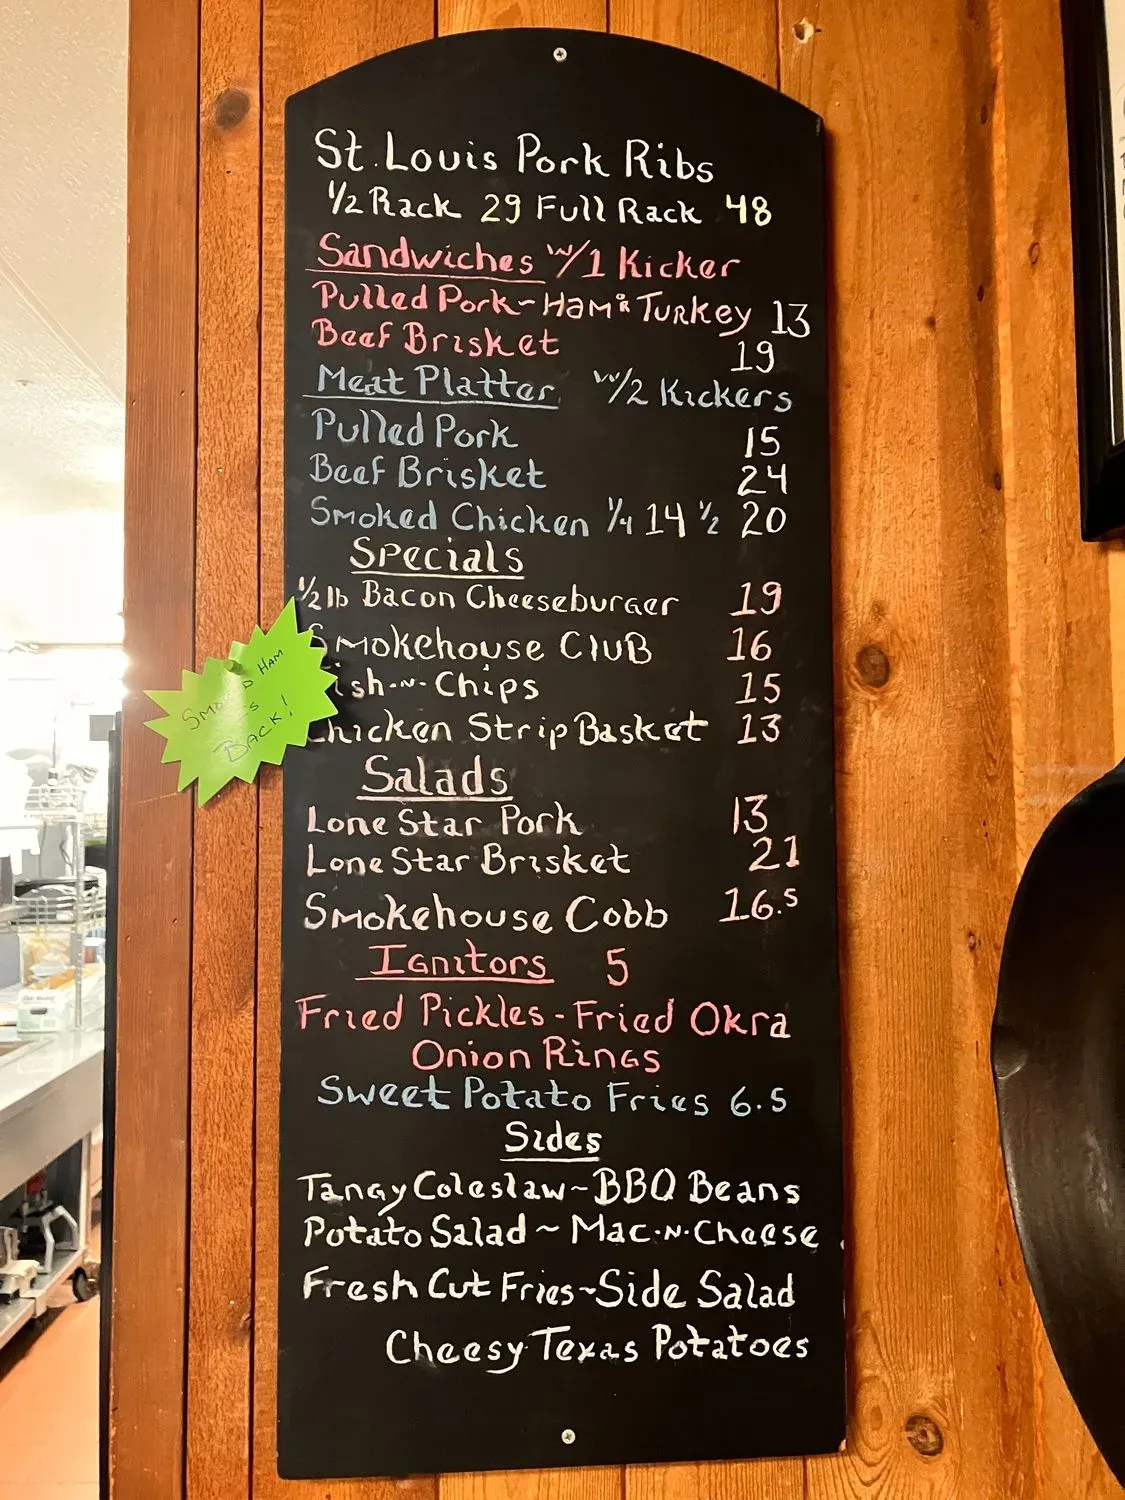 St. Louis Pork Ribs
1/2 Rack 29 Full Rack 48
Sandwiches w/1 Kicker
Pulled Pork~Ham & Turkey 13
Beef Brisket 19
Meat Platter w/2 Kickers
Pulled Pork 15
Beef Brisket 24
Smoked Chicken 1/4 14 1/2 20
Specials
1/2 lb Bacon Cheeseburger 19
Smokehouse Club 16
ish-n-Chips 15
Chicken Strip Basket 13
Salads
Lone Star Pork 13
Lone Star Brisket 21
Smokehouse Cobb 16.5
Ignitors 5
Fried Pickles - Fried Okra
Onion Rings
Sweet Potato Fries 6.5
Sides
Tangy Coleslaw~BBQ Beans
Potato Salad ~ Mac-N-Cheese
Fresh Cut Fries~Side Salad
Cheesy Texas Potatoes
Ham
Back!